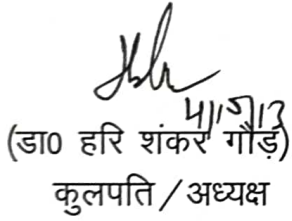 (डा0 हरि शंकर गौड़)
कुलपति / अध्यक्ष